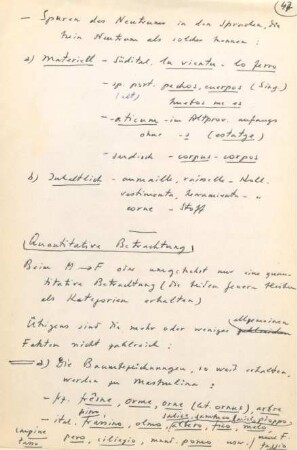 47
– Spuren des Neutrums in den Sprachen, die
kein Neutrum als solches kennen:
a) Materiell – Südital. lu vientu – lo ferro
– sp. port. pechos, cuerpos (Sing.)
(alt) huebos me es
– -aticum – im Altprov. anfangs
ohne -s (ostatge)
– sardisch – corpus – corpos
b) Inhaltlich –
vestimenta,
corne – Stoff
(Quantitative Betrachtung)
Beim M → F oder umgekehrt nur eine quan-
titative Betrachtung (die beiden Genera bleiben
als Kategorien erhalten)
Übrigens sind die mehr oder weniger allgemeinen
Fakten nicht zahlreich:
a) Die Baumbezeichnungen, so weit erhalten,
werden zu Maskulina:
– fz. frêne, orme, orne (lat. ornus), arbre
pino,
– ital. frassino, olmo, albero, fico, melo,
pero, ciliegio, pomo usw.
tasso